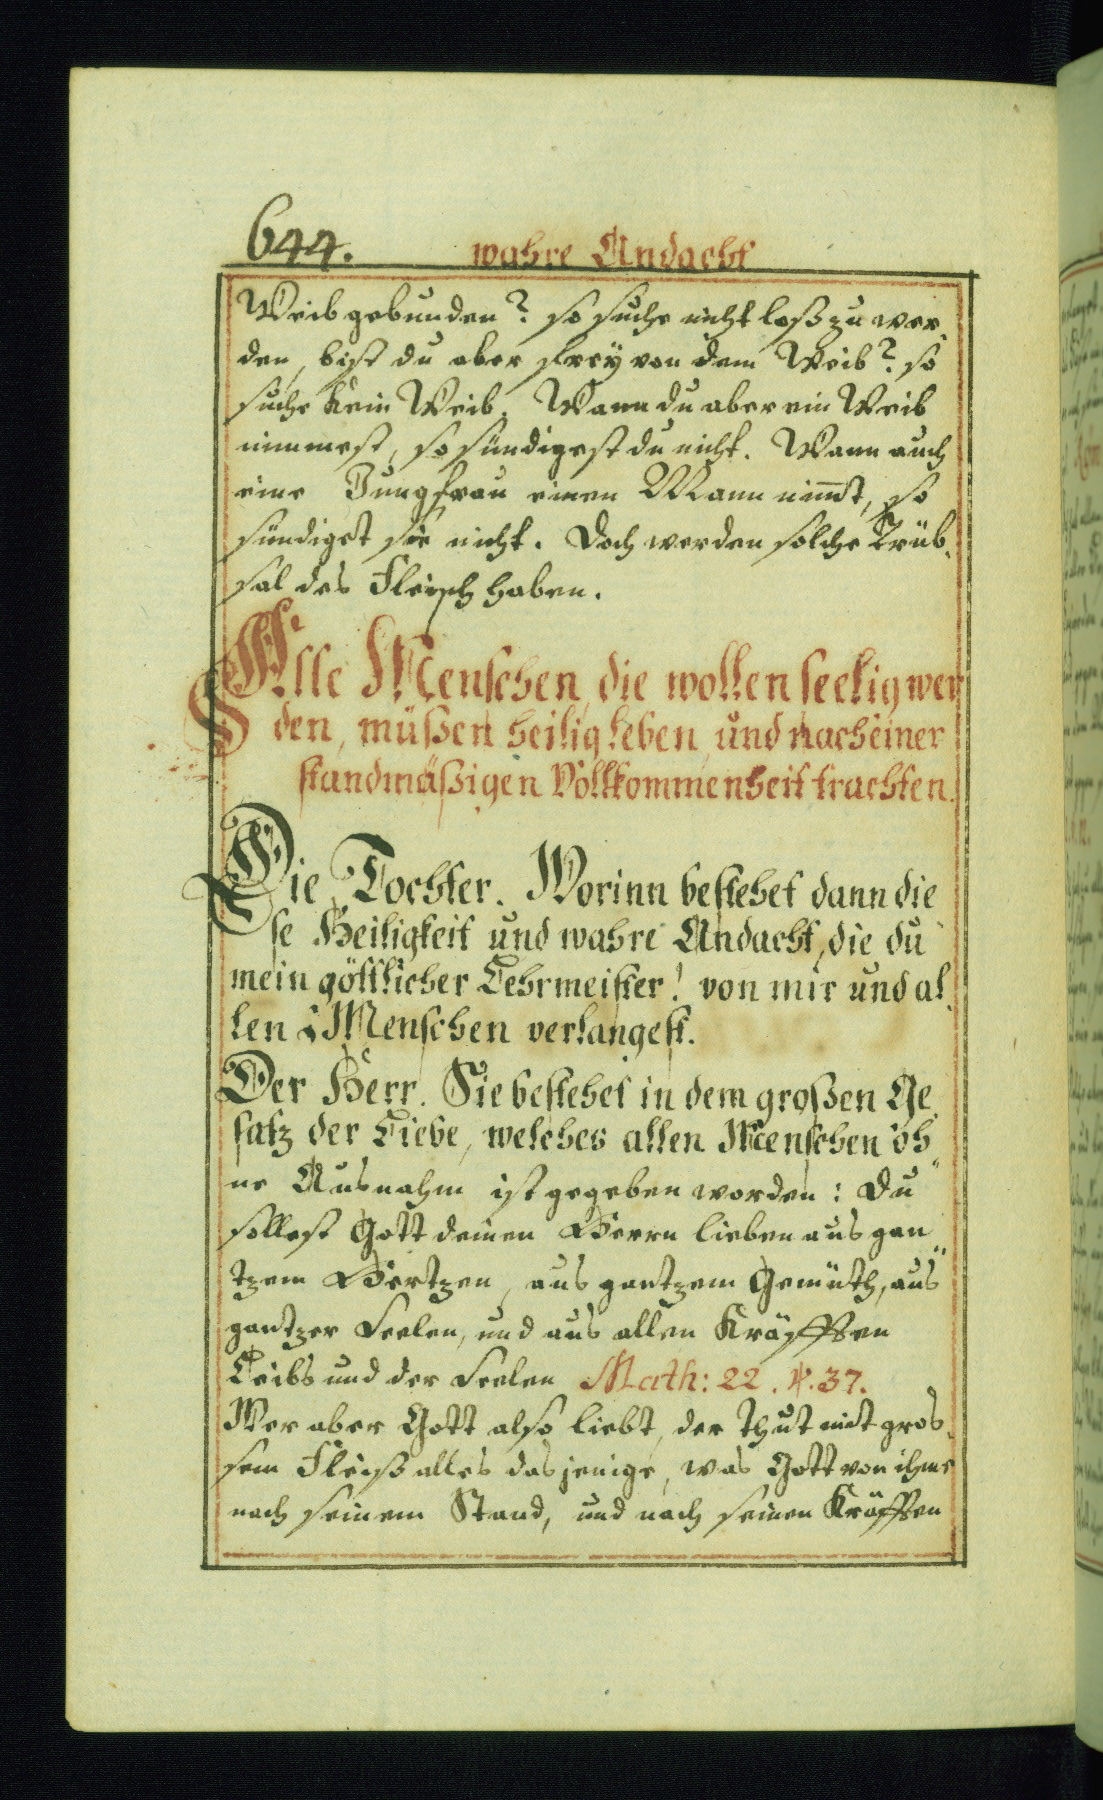 644.
wahre Andacht
Weib gebunden? so suche nicht loß zu wer,
den, bist du aber frey von dem Weib? so
suche kein Weib. Wann du aber ein Weib
nimmest, so sündigest du nicht. Wann auch
eine Jungfrau einen Mann nim̃t, so
sündiget sie nicht. Doch werden solche Trüb,
sal des Fleisch haben.
Alle Menschen, die wollen seelig wer
den, müßen heilig leben, und nach einer
standmäßigen Vollkommenheit trachten.
Die Tochter. Worinn bestehet dann die
se Heiligkeit und wahre Andacht, die du
mein göttlicher Lehrmeister! von mir und al,
len Menschen verlangest.
Der Herr. Sie bestehet in dem großen Ge,
satz der Liebe, welches allen Menschen oh
ne Ausnahm ist gegeben worden: Du
sollest Gott deinen Herrn lieben aus gan
tzem Hertzen, aus gantzem Gemüth, aus
gantzer Seelen, und aus allen Kräfften
Leibs und der Seelen Math: 22. ℣. 37.
Wer aber Gott also liebt, der thut mit gros,
sem Fleiß alles dasjenige, was Gott von ihme
nach seinem Stand, und nach seinen Kräfften